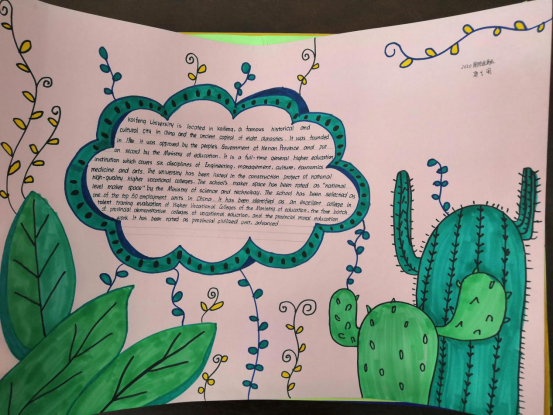 Kaifeng University is located in Kaifeng, a famous historical and
cultural city in China and the ancient capital of eight dynasties. It was founded
in It was approved by the people's Government of Henan Province and put
on record by the Ministry of education. It is a full-time general higher education
institution which covers six disciplines of Engineering, management, culture, economics
medicine and arts. The university has been listed in the construction project of national
high-quality higher vocational colleges. The school's maker space has been rated as "national
level maker space" by the Ministry of science and technology. The school has been selected as
one of the top 60 employment units in China. It has been identified as an excellent college in
talent training evaluation of Higher Vocational Colleges of the Ministry of education, the first batch
of provincial demonstrative colleges of vocational education, and the provincial moral education
It has been rated as provincial civilized unit, advanced
2020